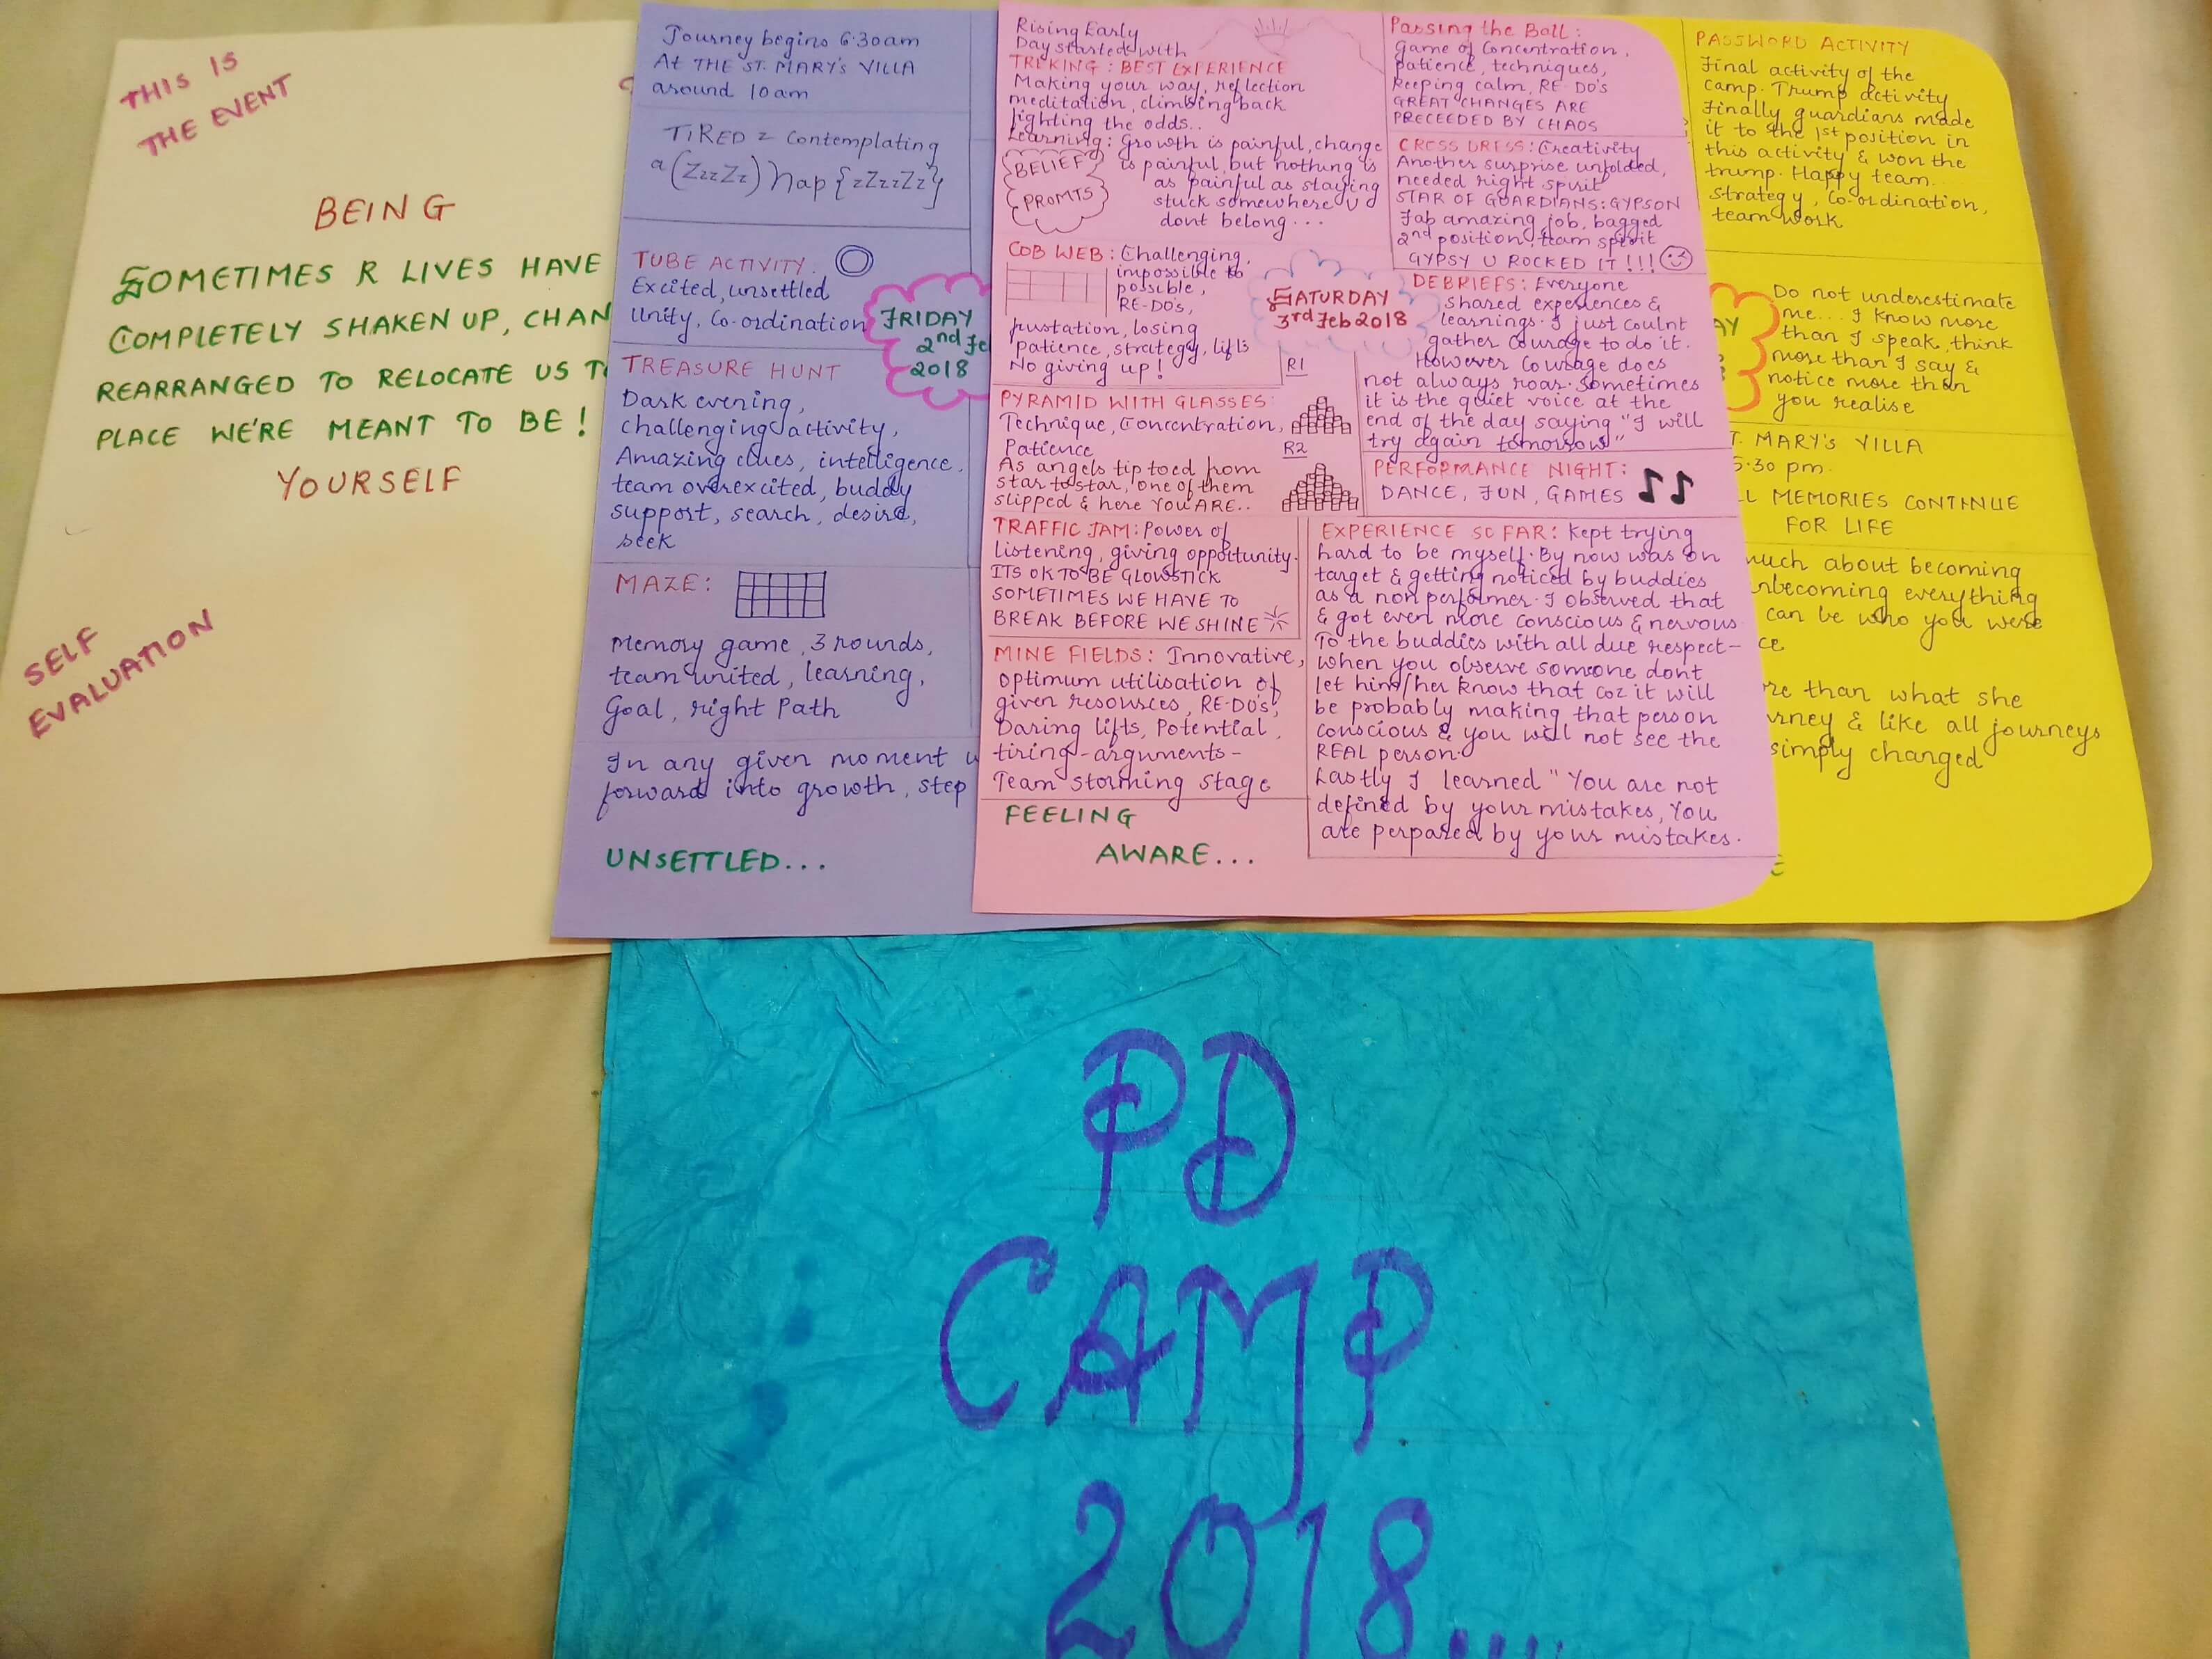 THIS IS
THE EVENT
BEING
SOMETIMES R LIVES HAVE
COMPLETELY SHAKEN UP, CHAN
REARRANGED TO RELOCATE US T
PLACE WE'RE MEANT TO BE!
YOURSELF
SELF
EVALUATION
Journey begins 6:30am
At THE ST. MARY'S VILLA
around 10am
TIRED z Contemplating
a (ZzzZz) Nap {zZzzZz}
TUBE ACTIVITY.
Excited, unsettled
Unity, Co-ordination
FRIDAY
2nd Fe
2018
TREASURE HUNT
Dark evening,
challenging activity,
Amazing clues, intelligence,
team overexcited, buddy
support, search, desire,
seek
MAZE:
Memory game, 3 rounds,
team united, learning,
Goal, right Path
In any given moment w
forward into growth, step
UNSETTLED...
Rising Early
Day started with
TREKING: BEST EXPERIENCE
Making your way, reflection
meditation, climbing back
fighting the odds..
Learning: Growth is painful, change
is painful, but nothing is
as painful as staying
stuck somewhere U
dont belong...
BELIEF
PROMTS
COB WEB: Challenging,
impossible to
possible,
RE-DO's,
frustation, losing
patience, strategy, lifts
No giving up!
SATURDAY
3rd Feb 2018
PYRAMID WITH GLASSES:
Technique, Concentration,
Patience
R1
R2
As angels tip toed from
star to star, one of them
slipped & here YOU ARE..
TRAFFIC JAM: Power of
listening, giving opportunity.
ITS OK TO BE GLOWSTICK
SOMETIMES WE HAVE TO
BREAK BEFORE WE SHINE
MINE FIELDS: Innovative,
optimum utilisation of
given resources, RE-DO's,
Daring lifts, Potential,
tiring-arguments-
Team storming stage
FEELING
AWARE...
Passing the Ball:
Game of Concentration,
patience, techniques,
keeping calm, RE-DO's
GREAT CHANGES ARE
PRECEEDED BY CHAOS
CROSS DRESS: Creativity
Another surprise unfolded,
needed right spirit
STAR OF GUARDIANS: GYPSON
Fab amazing job, bagged
2nd position, team spirit
GYPSY U ROCKED IT!!!
DEBRIEFS: Everyone
shared experiences &
learnings. I just coulnt
gather courage to do it.
However Courage does
not always roar. Sometimes
it is the quiet voice at the
end of the day saying "I will
try again tomorrow"
PERFORMANCE NIGHT:
DANCE, FUN, GAMES
EXPERIENCE SO FAR: Kept trying
hard to be myself. By now was on
target & getting noticed by buddies
as a non performer. I observed that
& got even more conscious & nervous
To the buddies with all due respect-
when you observe someone dont
let him/her know that coz it will
be probably making that person
conscious & you will not see the
REAL person.
Lastly I learned "You are not
defined by your mistakes, You
are perpared by your mistakes.
PASSWORD ACTIVITY
Final activity of the
camp. Trump activity
Finally guardians made
it to the 1st position in
this activity & won the
trump. Happy team.
Strategy, Co-ordination,
team work
AY
Do not underestimate
me... I know more
than I speak, think
more than I say &
notice more than
you realise
T. MARY'S VILLA
5:30 pm.
LL MEMORIES CONTINUE
FOR LIFE
much about becoming
nbecoming everything
can be who you were
ce
re than what she
urney & like all journeys
simply changed
PD
CAMP
2018....